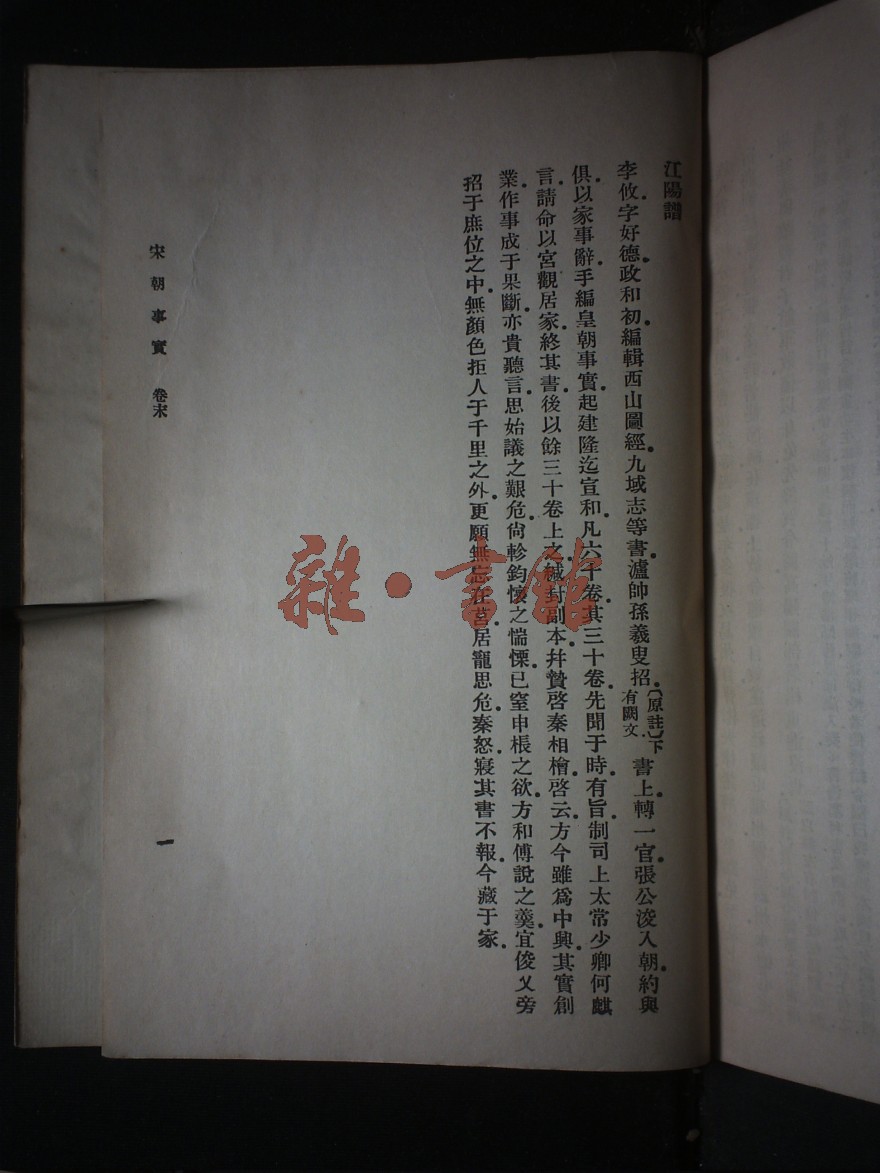 江陽譜
李攸字好德.政和初.編輯西山圖經.九域志等書.瀘帥孫羲叟招.〔原註〕下有闕文.書上轉一官.張公浚入朝.約與
俱.以家事辭.手編皇朝事實.起建隆迄宣和.凡六十卷.其三十卷.先聞于時.有旨.制司上太常少卿何麒
言.請命以宮觀居家.終其書.後以餘三十卷上之.緘封副本.幷贄啓秦相檜.啓云.方今雖爲中興.其實創
業.作事成于果斷.亦貴聽言.思始議之艱危.尙軫鈞懷之惴慄.已窒申棖之欲.方和傅說之羹.宜俊乂旁
招于庶位之中.無顏色拒人于千里之外.更願無忘在莒.居寵思危.秦怒.寢其書不報.今藏于家.
宋朝事實 卷末
一
雜·書館